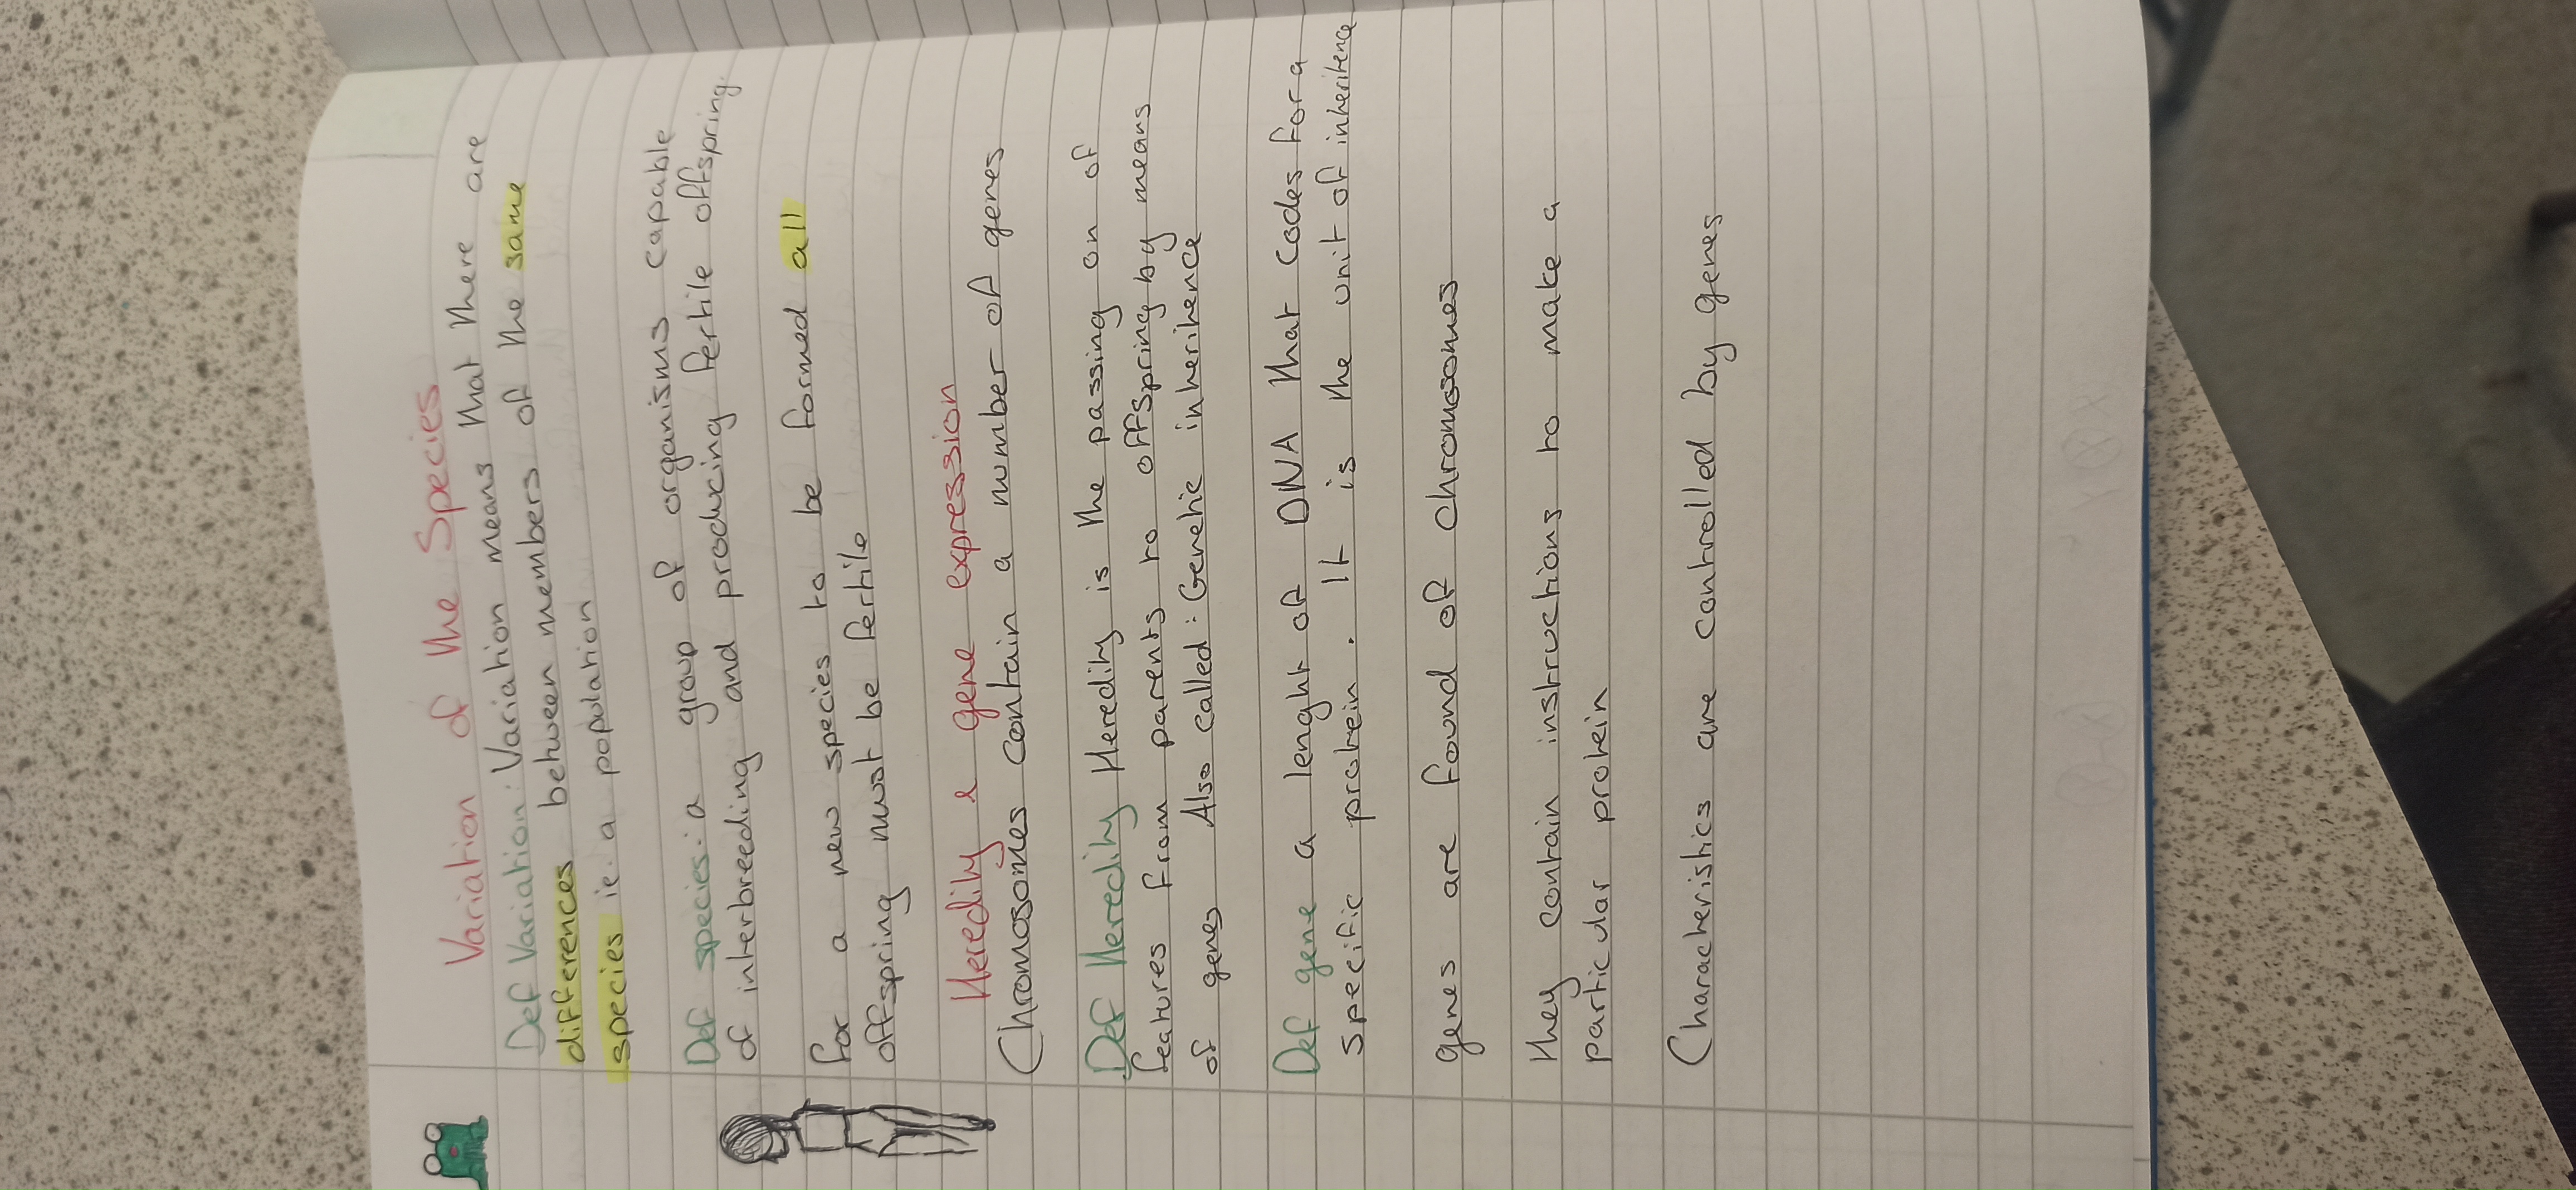 Variation of the Species
Def Variation: Variation means that there are
differences between members of the same
species ie. a population
Def species: a group of organisms capable
of interbreeding and producing fertile offspring.
for a new species to be formed all
offspring must be fertile
Heredity & gene expression
Chromosomes contain a number of genes
Def Heredity Heredity is the passing on of
features from parents to offspring by means
of genes Also called: Genetic inheritence
Def gene a lenght of DNA that codes for a
specific protein. It is the unit of inheritence
genes are found of chromosomes
they contain instructions to make a
particular protein
Characteristics are controlled by genes